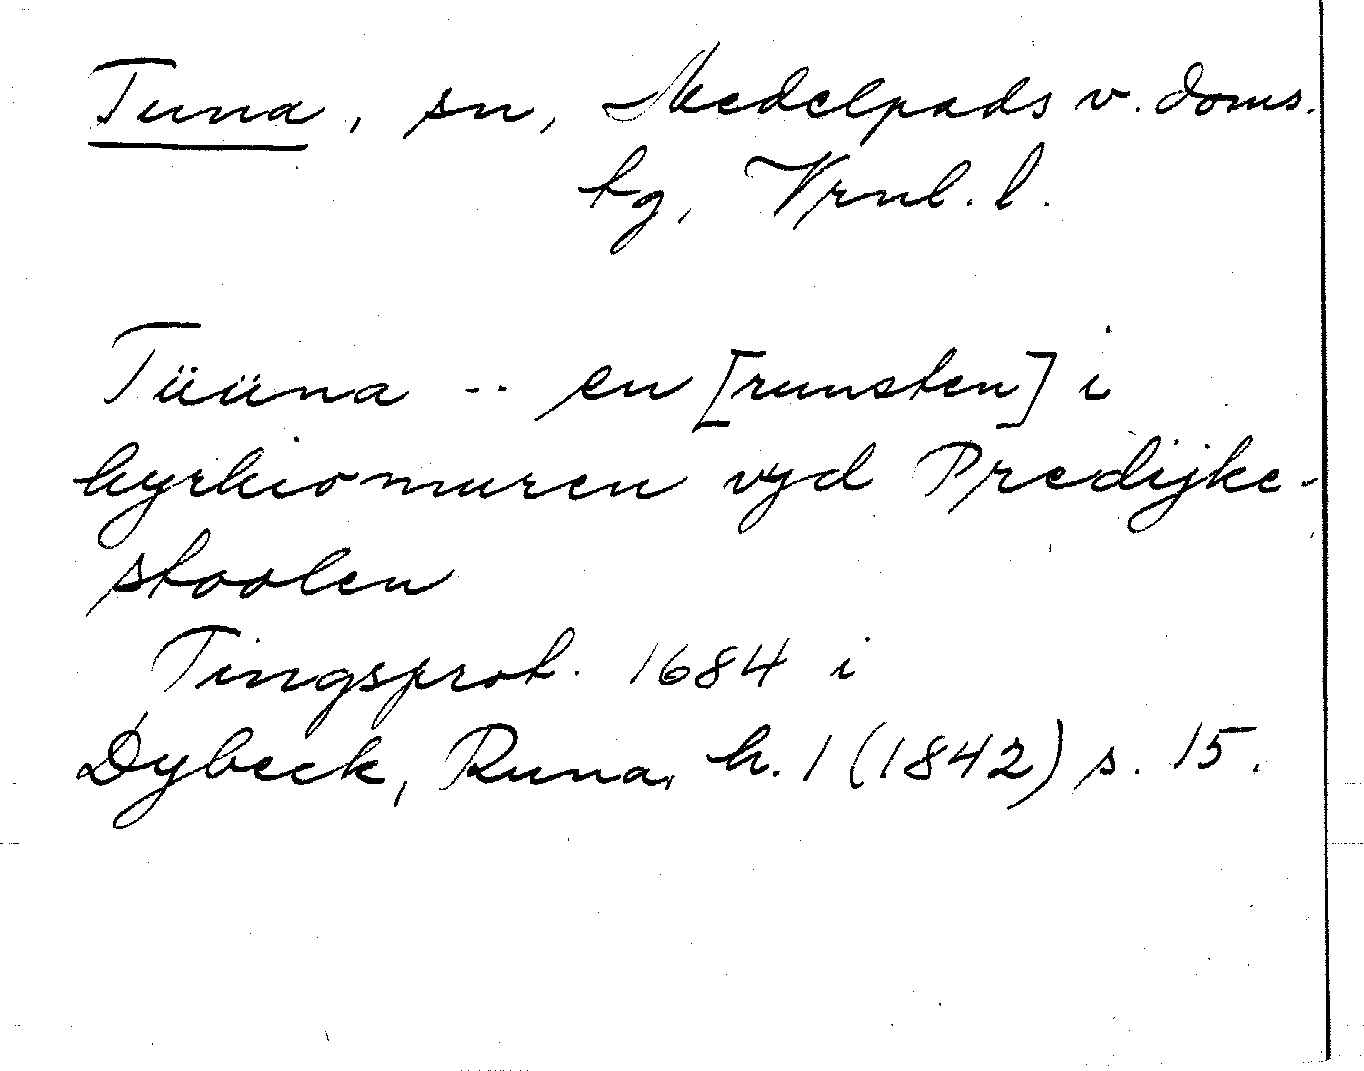 Tuna, sn, Medelpads v. doms.
tg, Vrnl. l.
Tüüna -- en [runsten] i
kyrkiomuren vyd Predijke-
stoolen
Tingsprot. 1684 i
Dybeck, Runa, h. 1 (1842) s. 15.